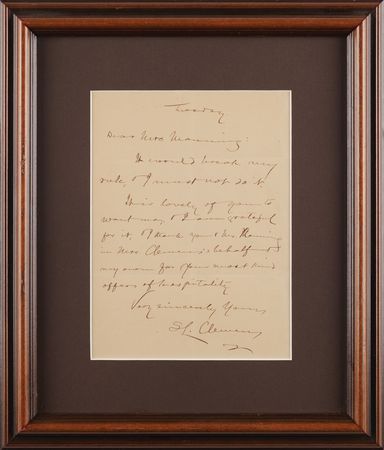 Tuesday
Dear Mrs Manning:
It would break my
rule, & I must not do it.
It is lovely of you to
want me, & I am grateful
for it. I thank you & Mr. Manning
in Mrs. Clemens's behalf &
my own for your most kind
offers of hospitality
Very sincerely Yours
SL. Clemens